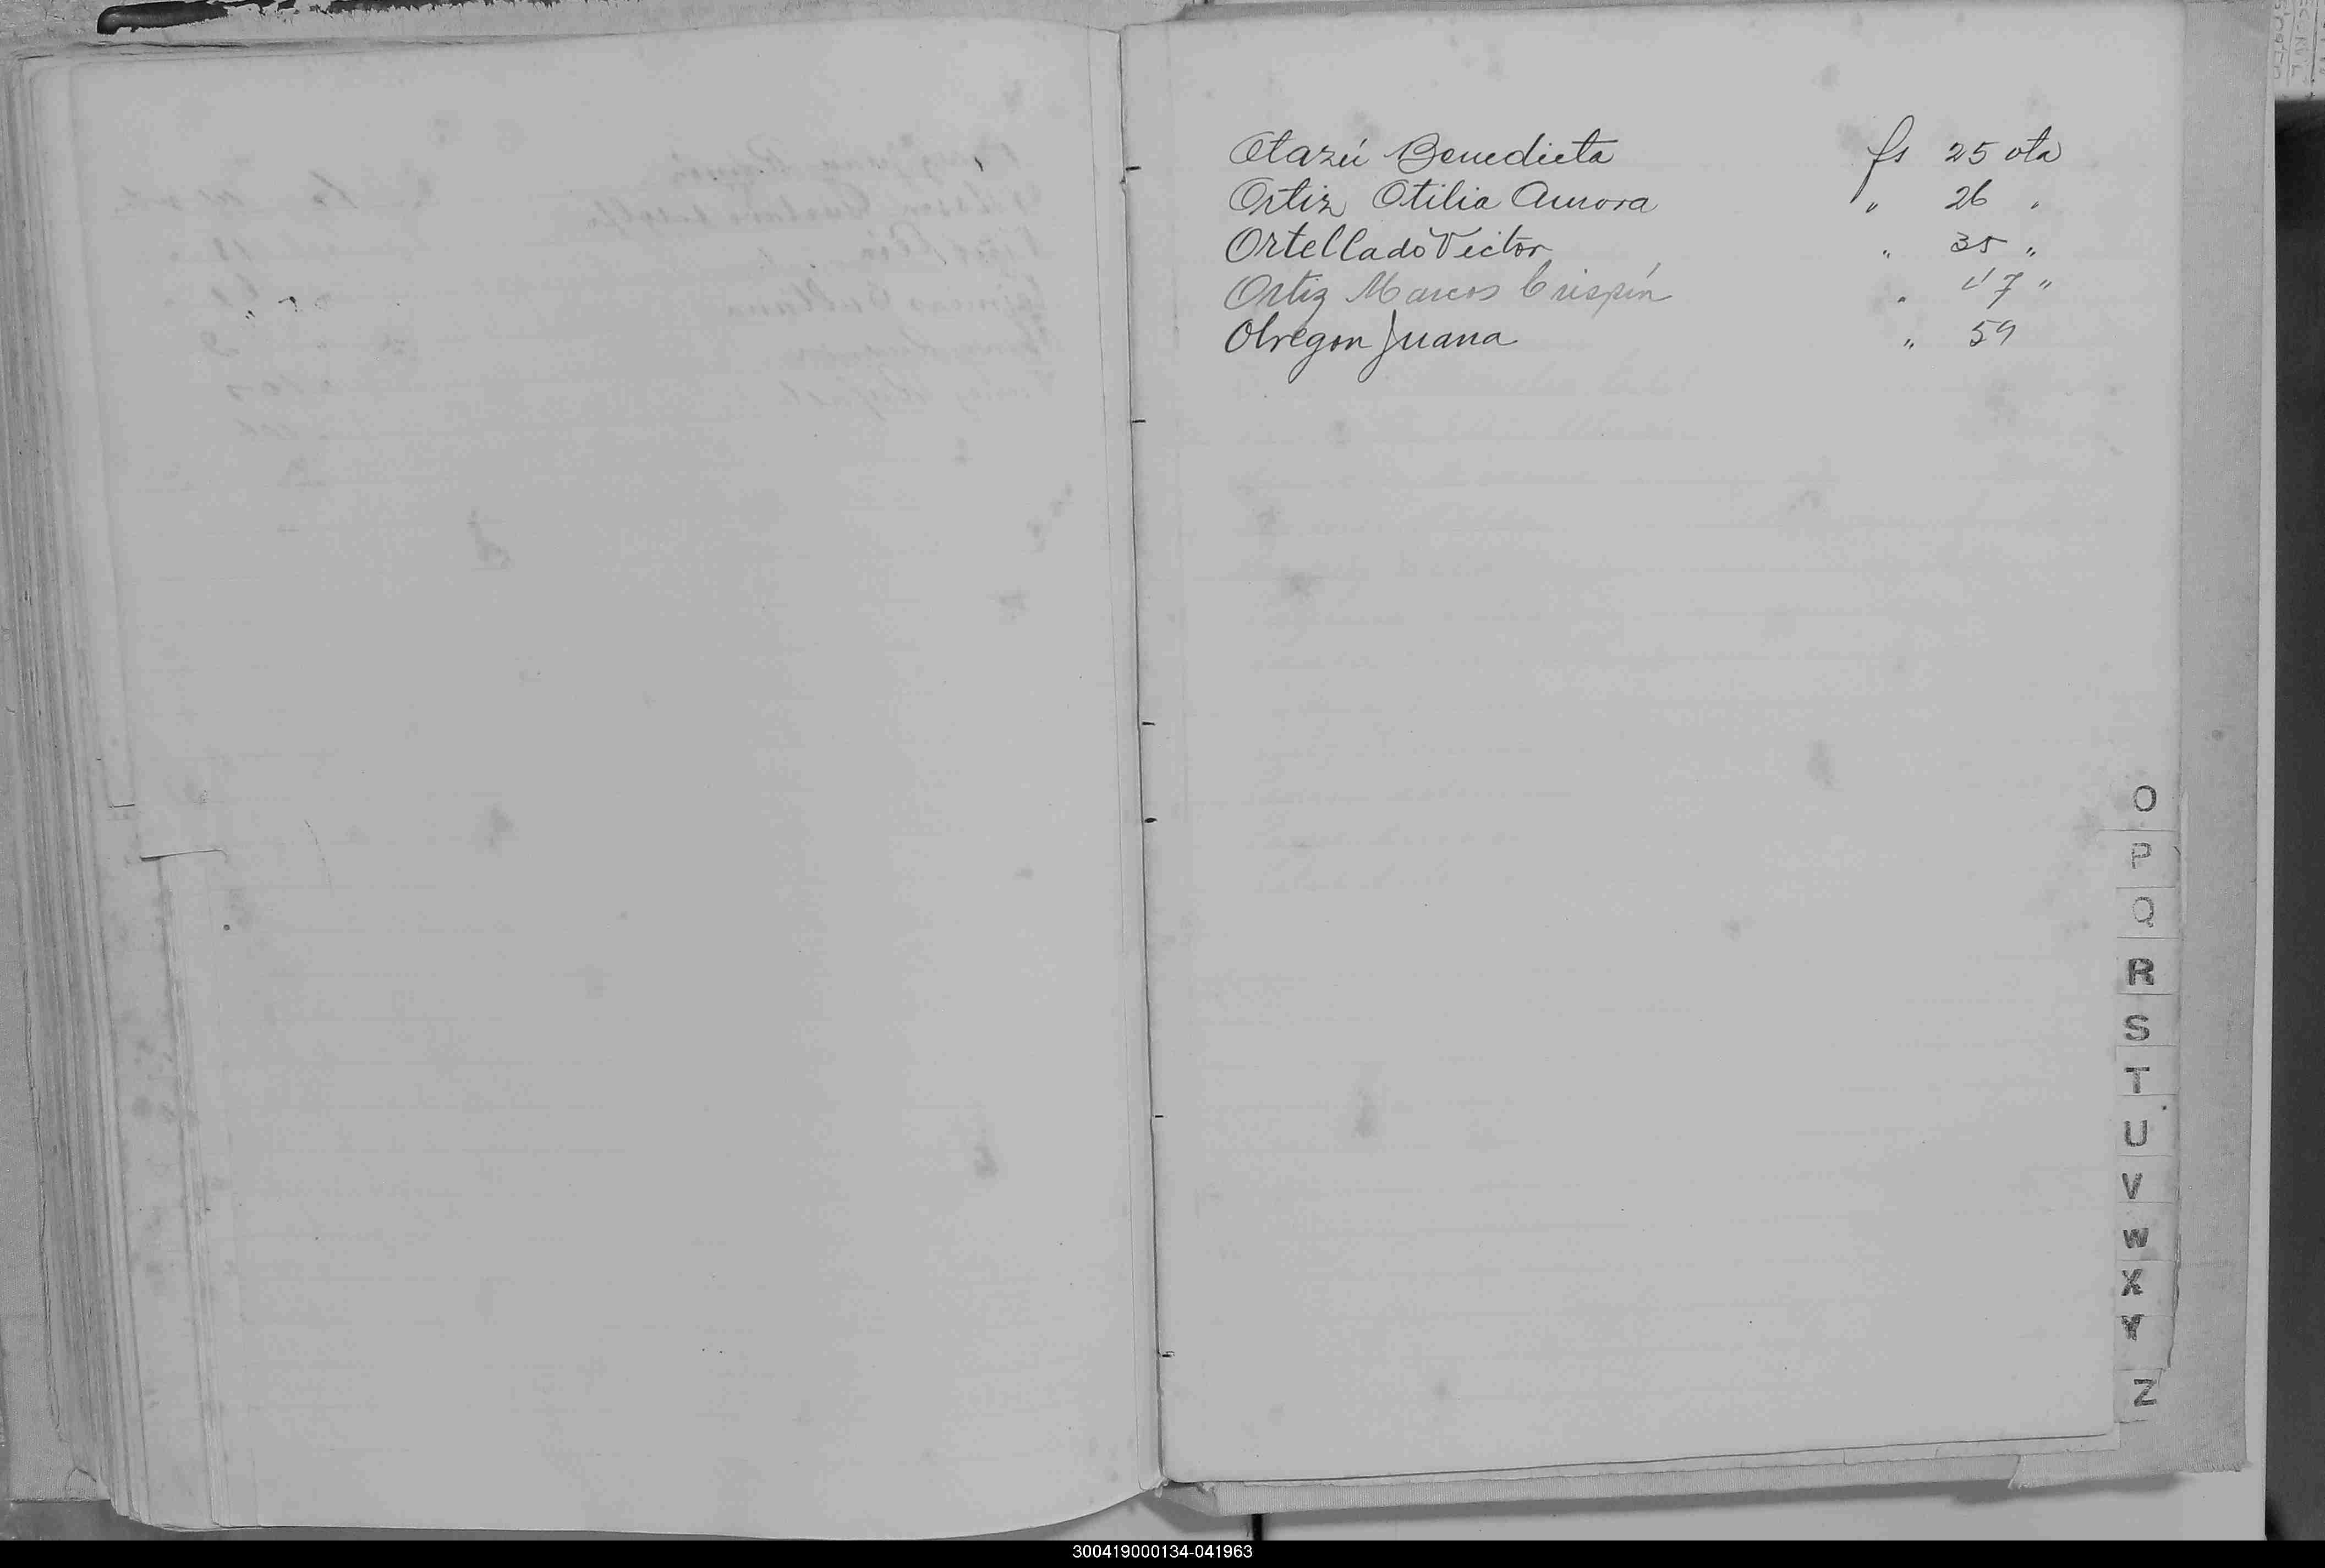 Otazú Benedicta fs 25 vta
Ortiz Otilia Aurora " 26 "
Ortellado Victor " 35 "
Ortiz Marcos Crispín " 47 "
Obregon Juana " 59
O
P
Q
R
S
T
U
V
W
X
Y
Z
300419000134-041963